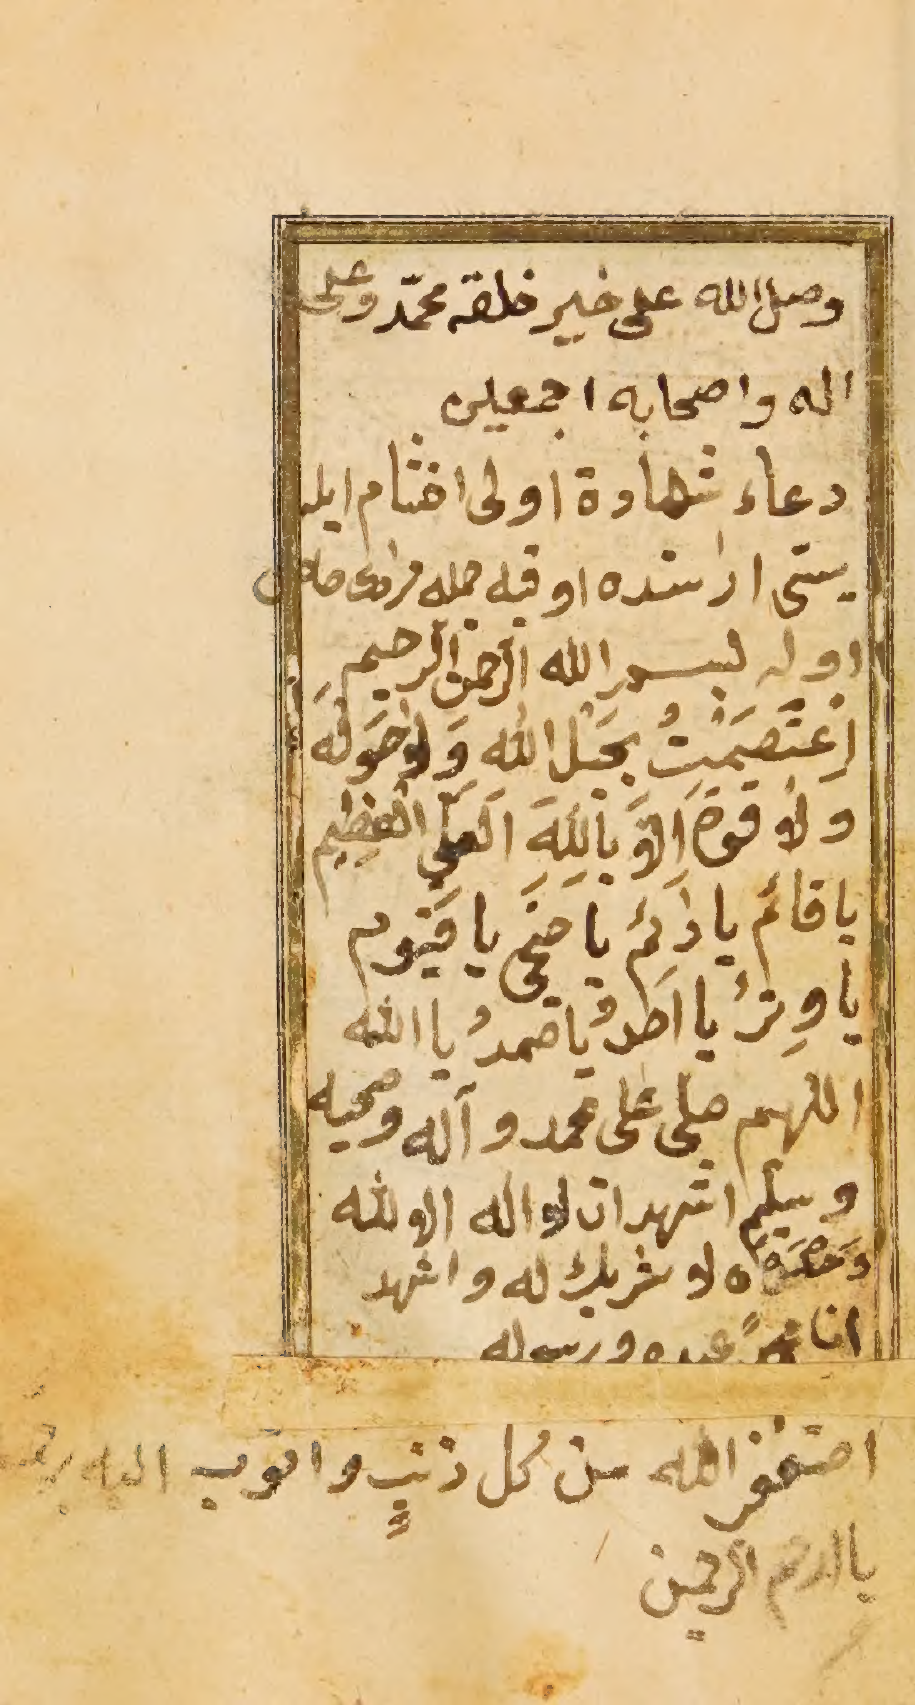 وصل الله على خير خلقه محمّد وعلى
اله واصحابه اجمعين
دعاء شهادة اولى اختام ايله
اراسنده اوقيه جمله مرادى حاصل
اوله بسم الله الرحمن الرحيم
اِعْتَصَمْتُ بحَبْل الله وَلا حَولَ
ولا قوة اِلاَّ بِاللهِ اَلعَلِّى العظِيم
يا قائم يا دَائِم يا حَى يا قَيّوم
يا وِترُ يا احدُ يا صمدُ يا الله
اللهم صلى على محمد و آله وصحبه
وسلم اشهد ان لا اله الا الله
وَحْدَهُ لا شريك له و اشهد
ان محمدً عبده ورسوله
استغفر الله من كل ذنبٍ و اتوب اليه
يا ارحم الرحمين